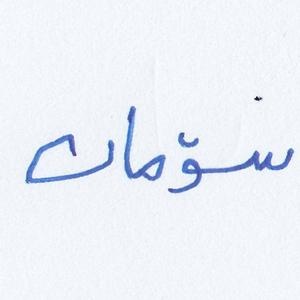 خۆمان